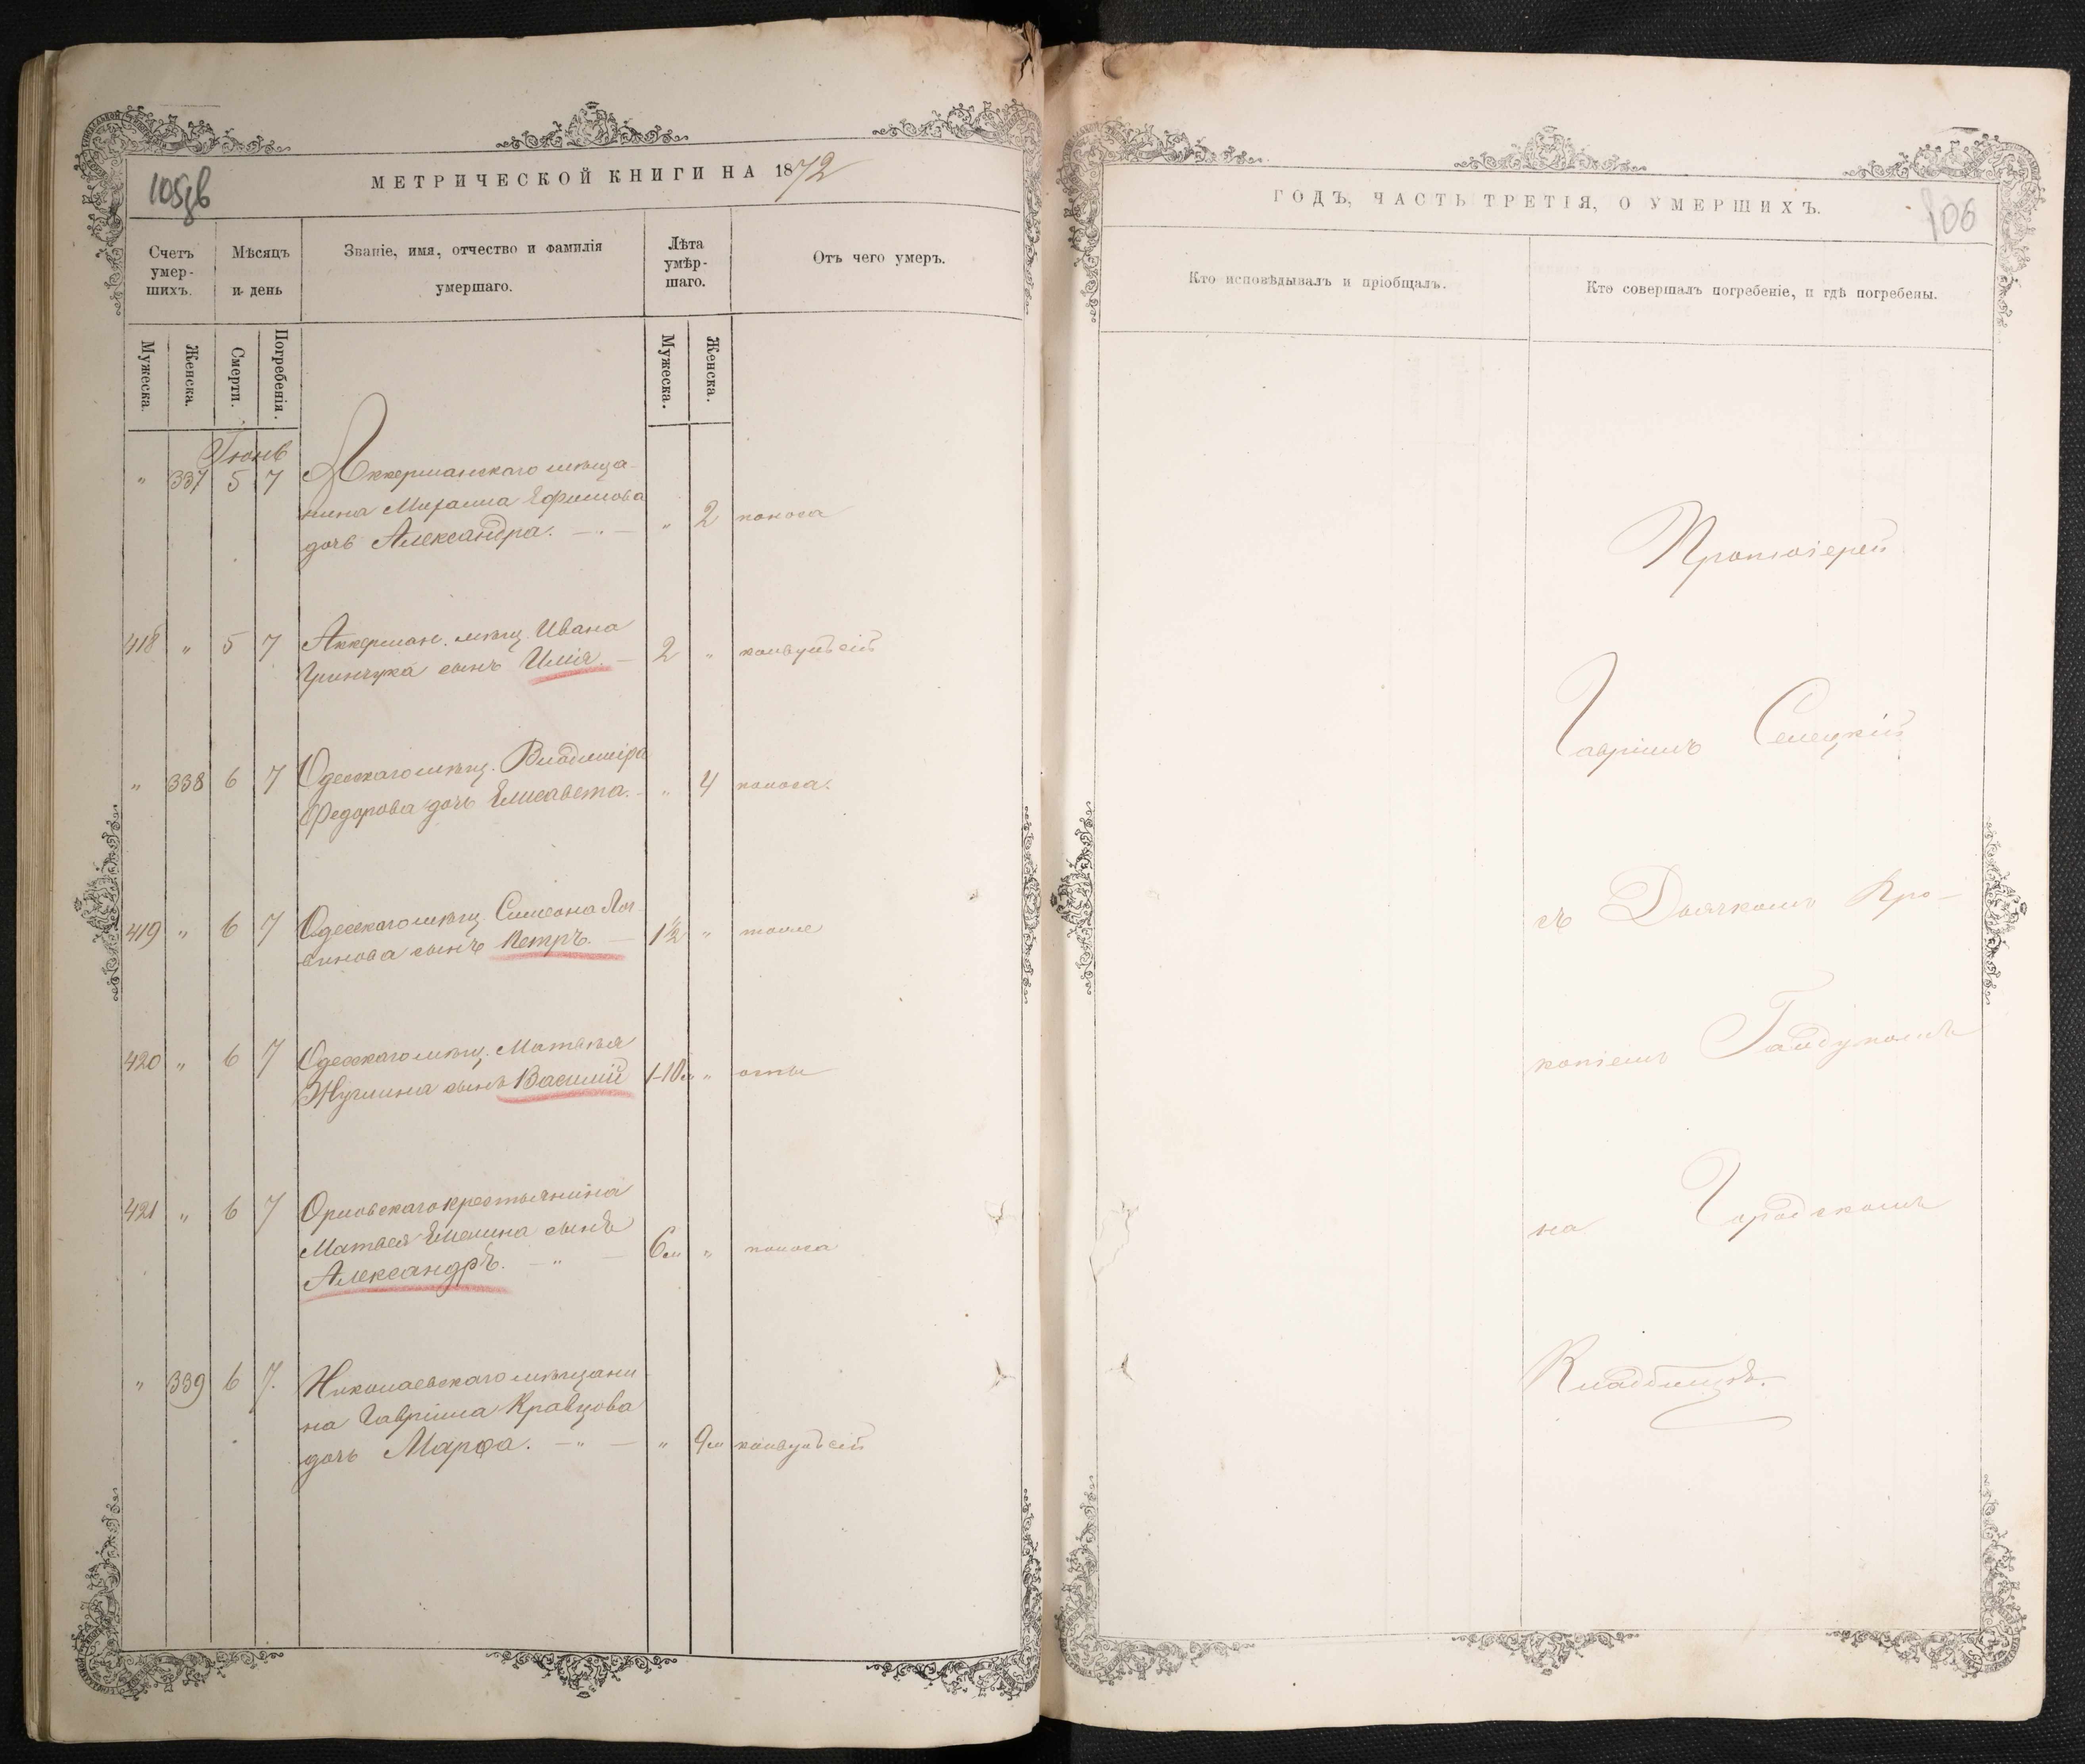 105об
МЕТРИЧЕСКОЙ КНИГИ НА 1872
Счетъ умер-шихъ.
Мѣсяцъ и день
Званіе, имя, отчество и фамилія умершаго.
Лѣта умѣр-шаго.
Отъ чего умеръ.
Мужеска.
Женска.
Смерти.
Погребенія.
Мужеска.
Женска.
Іюнь
" 337 5 7 Аккерманскаго мѣща-
нина Михаила Ефимова
дочь Александра. " 2 поноса
418 " 5 7 Аккерман. мѣщ. Ивана
Гринчука сынъ Илія. 2 " конвульсій
" 338 6 7 Одесскаго мѣщ. Владиміра
Федорова дочь Елисавета. " 4 поноса.
419 " 6 7 Одесскаго мѣщ. Симеона Лог-
винова сынъ Петръ. 1½ " тоже
420 " 6 7 Одесскаго мѣщ. Матвѣя
сынъ Василій 1-10м " оспы
421 " 6 7 Орловскаго крестьянина
Матвея Емелина сынъ
Александръ. 6м " поноса
" 339 6 7. Николаевскаго мѣщани-
на Гавріила Кравцова
дочь Марѳа. " 9м конвульсій
ГОДЪ, ЧАСТЬ ТРЕТІЯ, О УМЕРШИХЪ.
106
Кто исповѣдывалъ и пріобщалъ.
Кто совершалъ погребеніе, и гдѣ погребены.
Протоіерей
Гавріилъ Селецкій
съ Дьячкомъ Про-
копіемъ Гайдукомъ
на Городскомъ
Кладбищѣ.